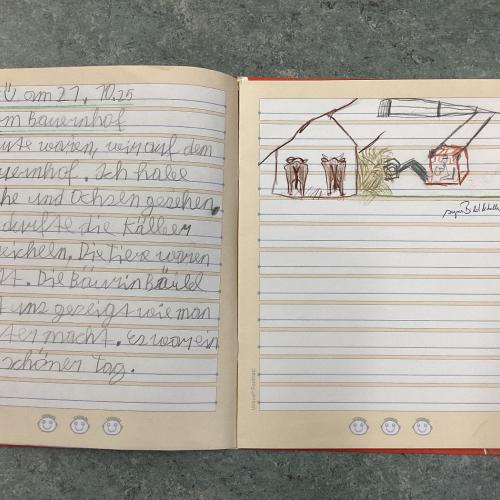 am 21.10.25
m Bauernhof
waren wir auf dem
uernhof. Ich habe
he und Ochsen gesehen,
durfte die Kälber
eicheln. Die Tiere waren
t. Die Bäurin
t uns gezeigt wie man
ter macht. Es war ein
schöner Tag.
super